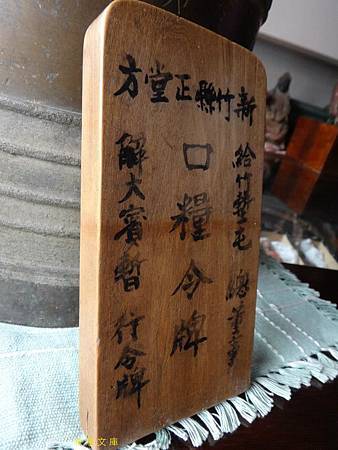 新竹縣正堂方
給竹塹屯總董事
口糧令牌
解大賓暫行令牌
文庫